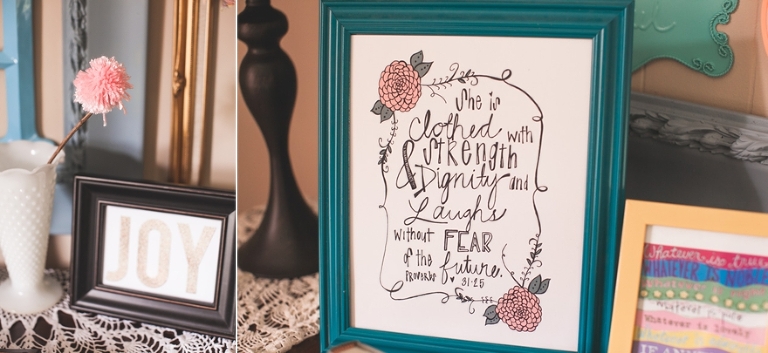 JOY
She is
Clothed with
Strength
& Dignity and
Laughs
without FEAR
of the future.
PROVERBS 31:25
Whatever is true
WHATEVER IS
Whatever is pure
Whatever is lovely